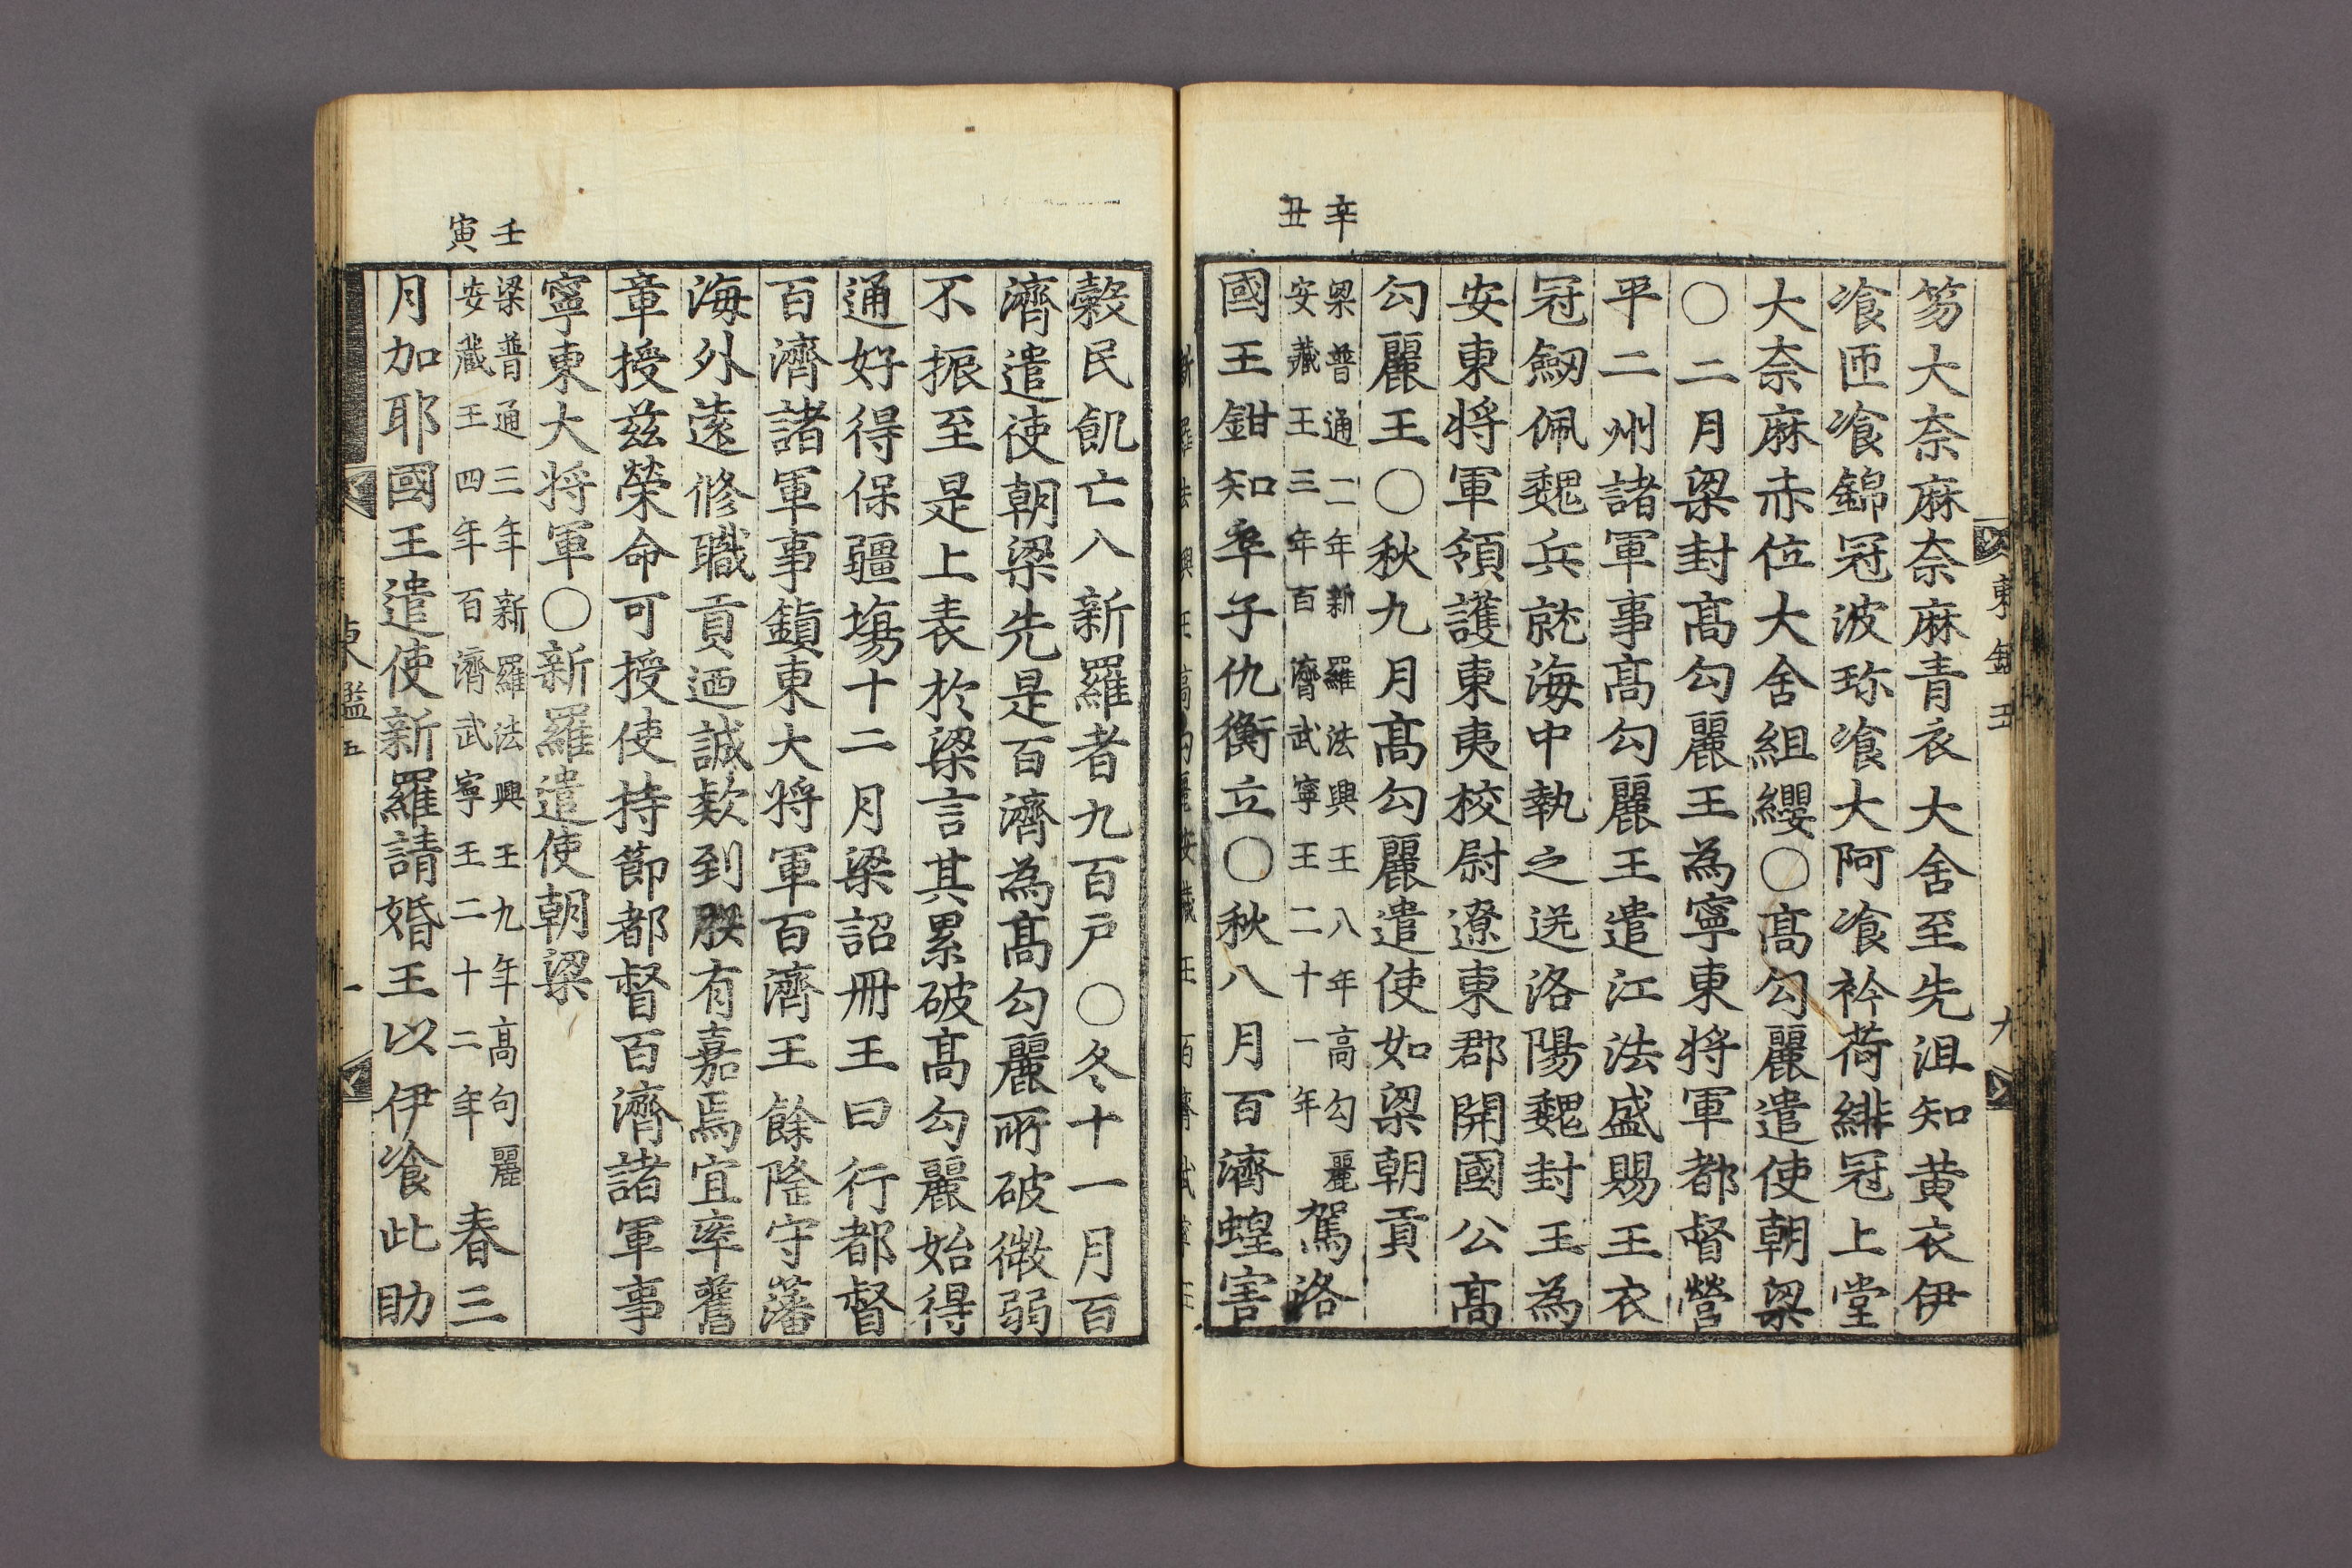 笏大奈麻奈麻青衣大舍至先沮知黄衣伊
飡匝飡錦冠波珎飡大阿飡衿荷緋冠上堂
大奈麻赤位大舍組纓〇髙勾麗遣使朝梁
〇二月梁封髙勾麗王為寧東將軍都督營
平二州諸軍事髙勾麗王遣江法盛賜王衣
冠劒佩魏兵就海中執之送洛陽魏封王為
安東將軍領護東夷校尉遼東郡開國公髙
勾麗王〇秋九月髙勾麗遣使如梁朝貢
辛丑
梁普通二年新羅法興王八年高勾麗
安藏王三年百濟武寧王二十一年
駕洛
國王鉗知卒子仇衡立〇秋八月百濟蝗害
穀民飢亡入新羅者九百戶〇冬十一月百
濟遣使朝梁先是百濟為髙勾麗所破微弱
不振至是上表於梁言其累破髙勾麗始得
通好得保疆埸十二月梁詔冊王曰行都督
百濟諸軍事鎭東大將軍百濟王餘隆守藩
海外遠修職貢迺誠欵到朕有嘉焉宜率舊
章授兹榮命可授使持節都督百濟諸軍事
寧東大將軍〇新羅遣使朝梁
壬寅
梁普通三年新羅法興王九年高句麗
安藏王四年百濟武寧王二十二年
春三
月加耶國王遣使新羅請婚王以伊飡比助
東鑑五